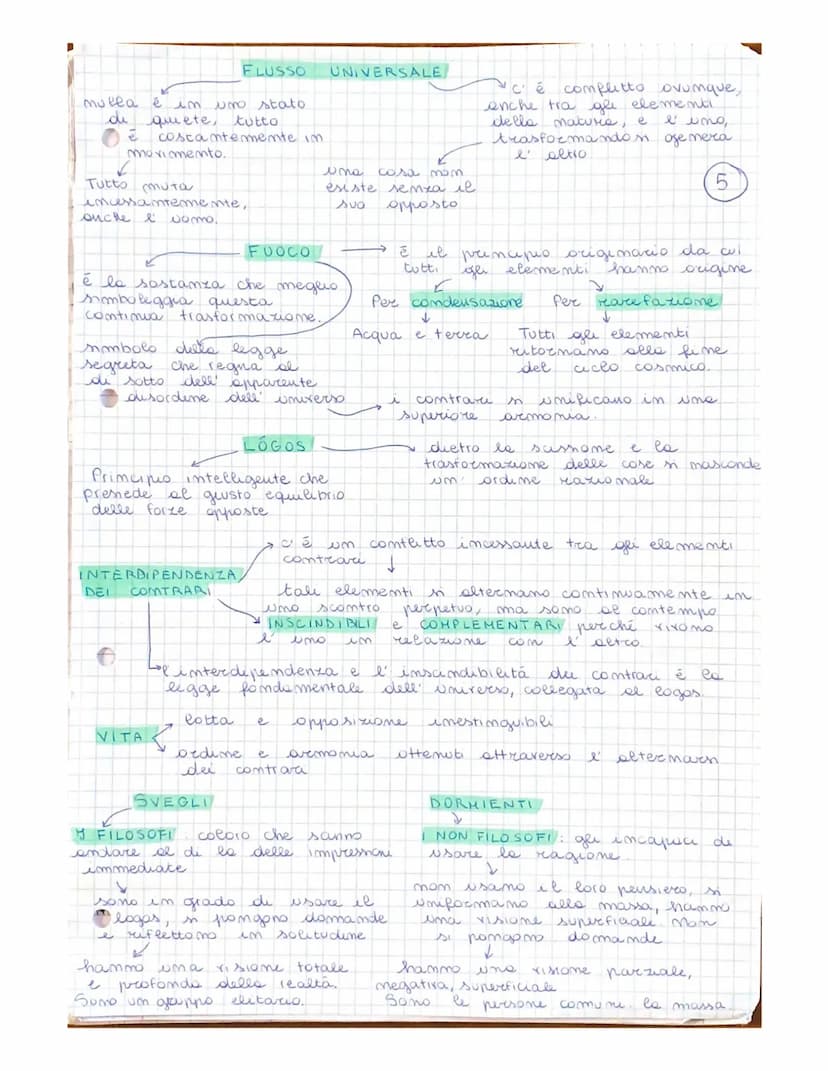 FLUSSO UNIVERSALE
nulla è in uno stato
di quiete, tutto
è costantemente in
movimento.
Tutto muta
incessantemente,
anche l'uomo.
c'è conflitto ovunque,
anche tra gli elementi
della natura, e l'uno,
trasformandosi genera
l'altro
una cosa non
esiste senza il
suo opposto
5
FUOCO
è il principio originario da cui
tutti gli elementi hanno origine
è la sostanza che meglio
simboleggia questa
continua trasformazione.
Per condensazione
Acqua e terra
Per rarefazione
Tutti gli elementi
ritornano alla fine
del ciclo cosmico.
simbolo della legge
segreta che regna al
di sotto dell'apparente
disordine dell'universo
i contrari si unificano in una
superiore armonia.
LÓGOS
dietro la scissione e la
trasformazione delle cose si nasconde
un'ordine razionale
Principio intelligente che
presiede al giusto equilibrio
delle forze opposte
INTERDIPENDENZA
DEI CONTRARI
c'è un conflitto incessante tra gli elementi
contrari
tali elementi si alternano continuamente in
uno scontro perpetuo, ma sono al contempo
INSCINDIBILI e COMPLEMENTARI perché vivono
l'uno in relazione con l'altro.
l'interdipendenza e l'inscindibilità dei contrari è la
legge fondamentale dell'universo, collegata al logos.
VITA
lotta e opposizione inestinguibili
ordine e armonia ottenuti attraverso l'alternarsi
dei contrari
SVEGLI
I FILOSOFI: coloro che sanno
andare al di là delle impressioni
immediate
sono in grado di usare il
logos, si pongono domande
e riflettono in solitudine
hanno una visione totale
e profonda della realtà.
Sono un gruppo elitario.
DORMIENTI
I NON FILOSOFI: gli incapaci di
usare la ragione.
non usano il loro pensiero, si
uniformano alla massa, hanno
una visione superficiale. Non
si pongono domande
hanno una visione parziale,
negativa, superficiale
Sono le persone comuni. la massa.